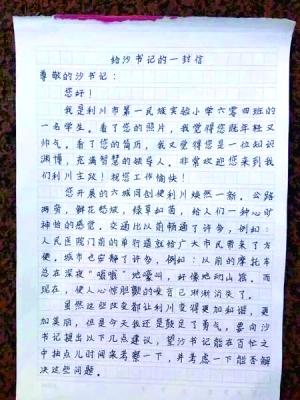 给沙书记的一封信
尊敬的沙书记：
您好！
我是利川市第一民族实验小学六零四班的
一名学生。看了您的照片，我觉得您既年轻又
帅气。看了您的简历，我又觉得您是一位知识
渊博，充满智慧的领导人。非常欢迎您来到我
们利川主政！祝您工作愉快！
您开展的六城同创使利川焕然一新。公路
两旁，鲜花怒放，绿草如茵，给人们一种心旷
神怡的感觉。交通比以前畅通了许多，例如：
人民医院门前的单行道就给广大市民带来了方
便。城市也安静了许多，例如：以前的摩托车
总在深夜“嗷嗷”地嚎叫，好像地动山摇。而
现在，使人心惊胆颤的噪音已渐渐消失了。
虽然这些改变都让利川变得更加和谐，更
加美丽，但是今天我还是鼓足了勇气，要向沙
书记提出以下几点建议，望沙书记能在百忙之
中抽点儿时间来考察一下，并考虑一下能否解
决这些问题。